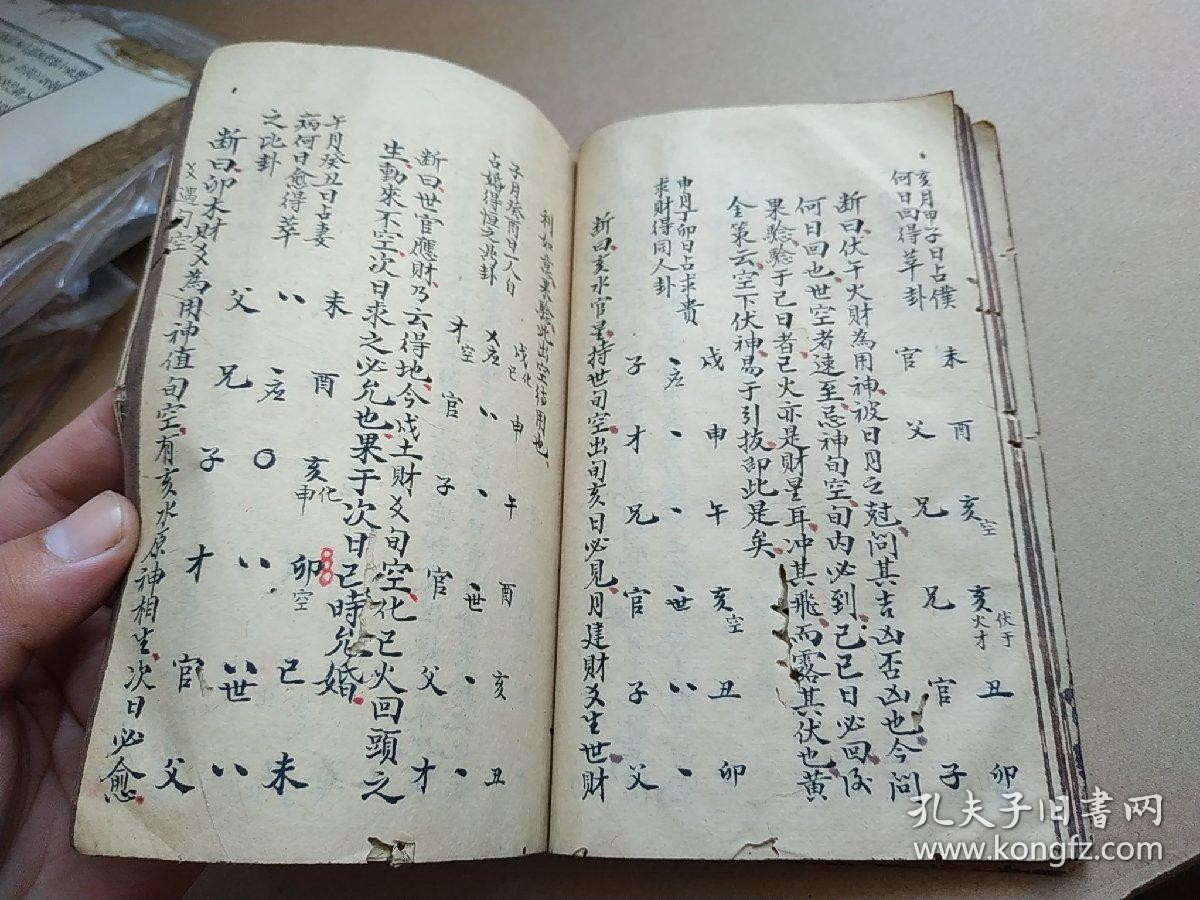 亥月甲子日占僕
何日回得革卦
官 未
父 酉
兄 亥空
兄 亥 伏于火才
官 丑
子 卯
断曰伏午火財為用神被日月之尅問其吉凶否凶也今問
何日回也世空者速至忌神旬空旬内必到己巳日必回後
果驗驗于己日者己火亦是財星耳冲其飛而露其伏也黄
金策云空下伏神易于引抜即此是矣
申月丁卯日占求貴
求財得同人卦
子 、应 戌
才 、 申
兄 、 午
官 、世 亥空
子 〃 丑
父 、 卯
断曰亥水官星持世旬空出旬亥日必見月建財爻生世財
利如意果驗此出空值用也
子月癸酉日一人自
占婚得恒之兆卦
才空 乂应 戌化巳
官 〃 申
子 、 午
官 、世 酉
父 、 亥
才 〃 丑
断曰世官應財乃云得地今戌土財爻旬空化巳火回頭之
生動來不空次日求之必允也果于次日己時允婚
午月癸丑日占妻
病何日愈得萃
之比卦
父 〃 未
兄 、应 酉
子 〇 亥化申
才 〃 卯空
官 〃世 巳
父 〃 未
断曰卯木財爻為用神值旬空有亥水原神相生次日必愈
爻遇旬空
孔夫子旧書网
www.kongfz.com